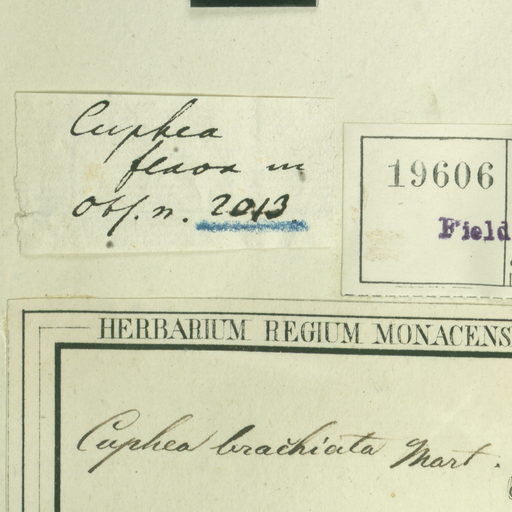 Cuphea
in
Obs. n. 2013.
19606
Field
HERBARIUM REGIUM MONACENS
Cuphea brachiata Mart.